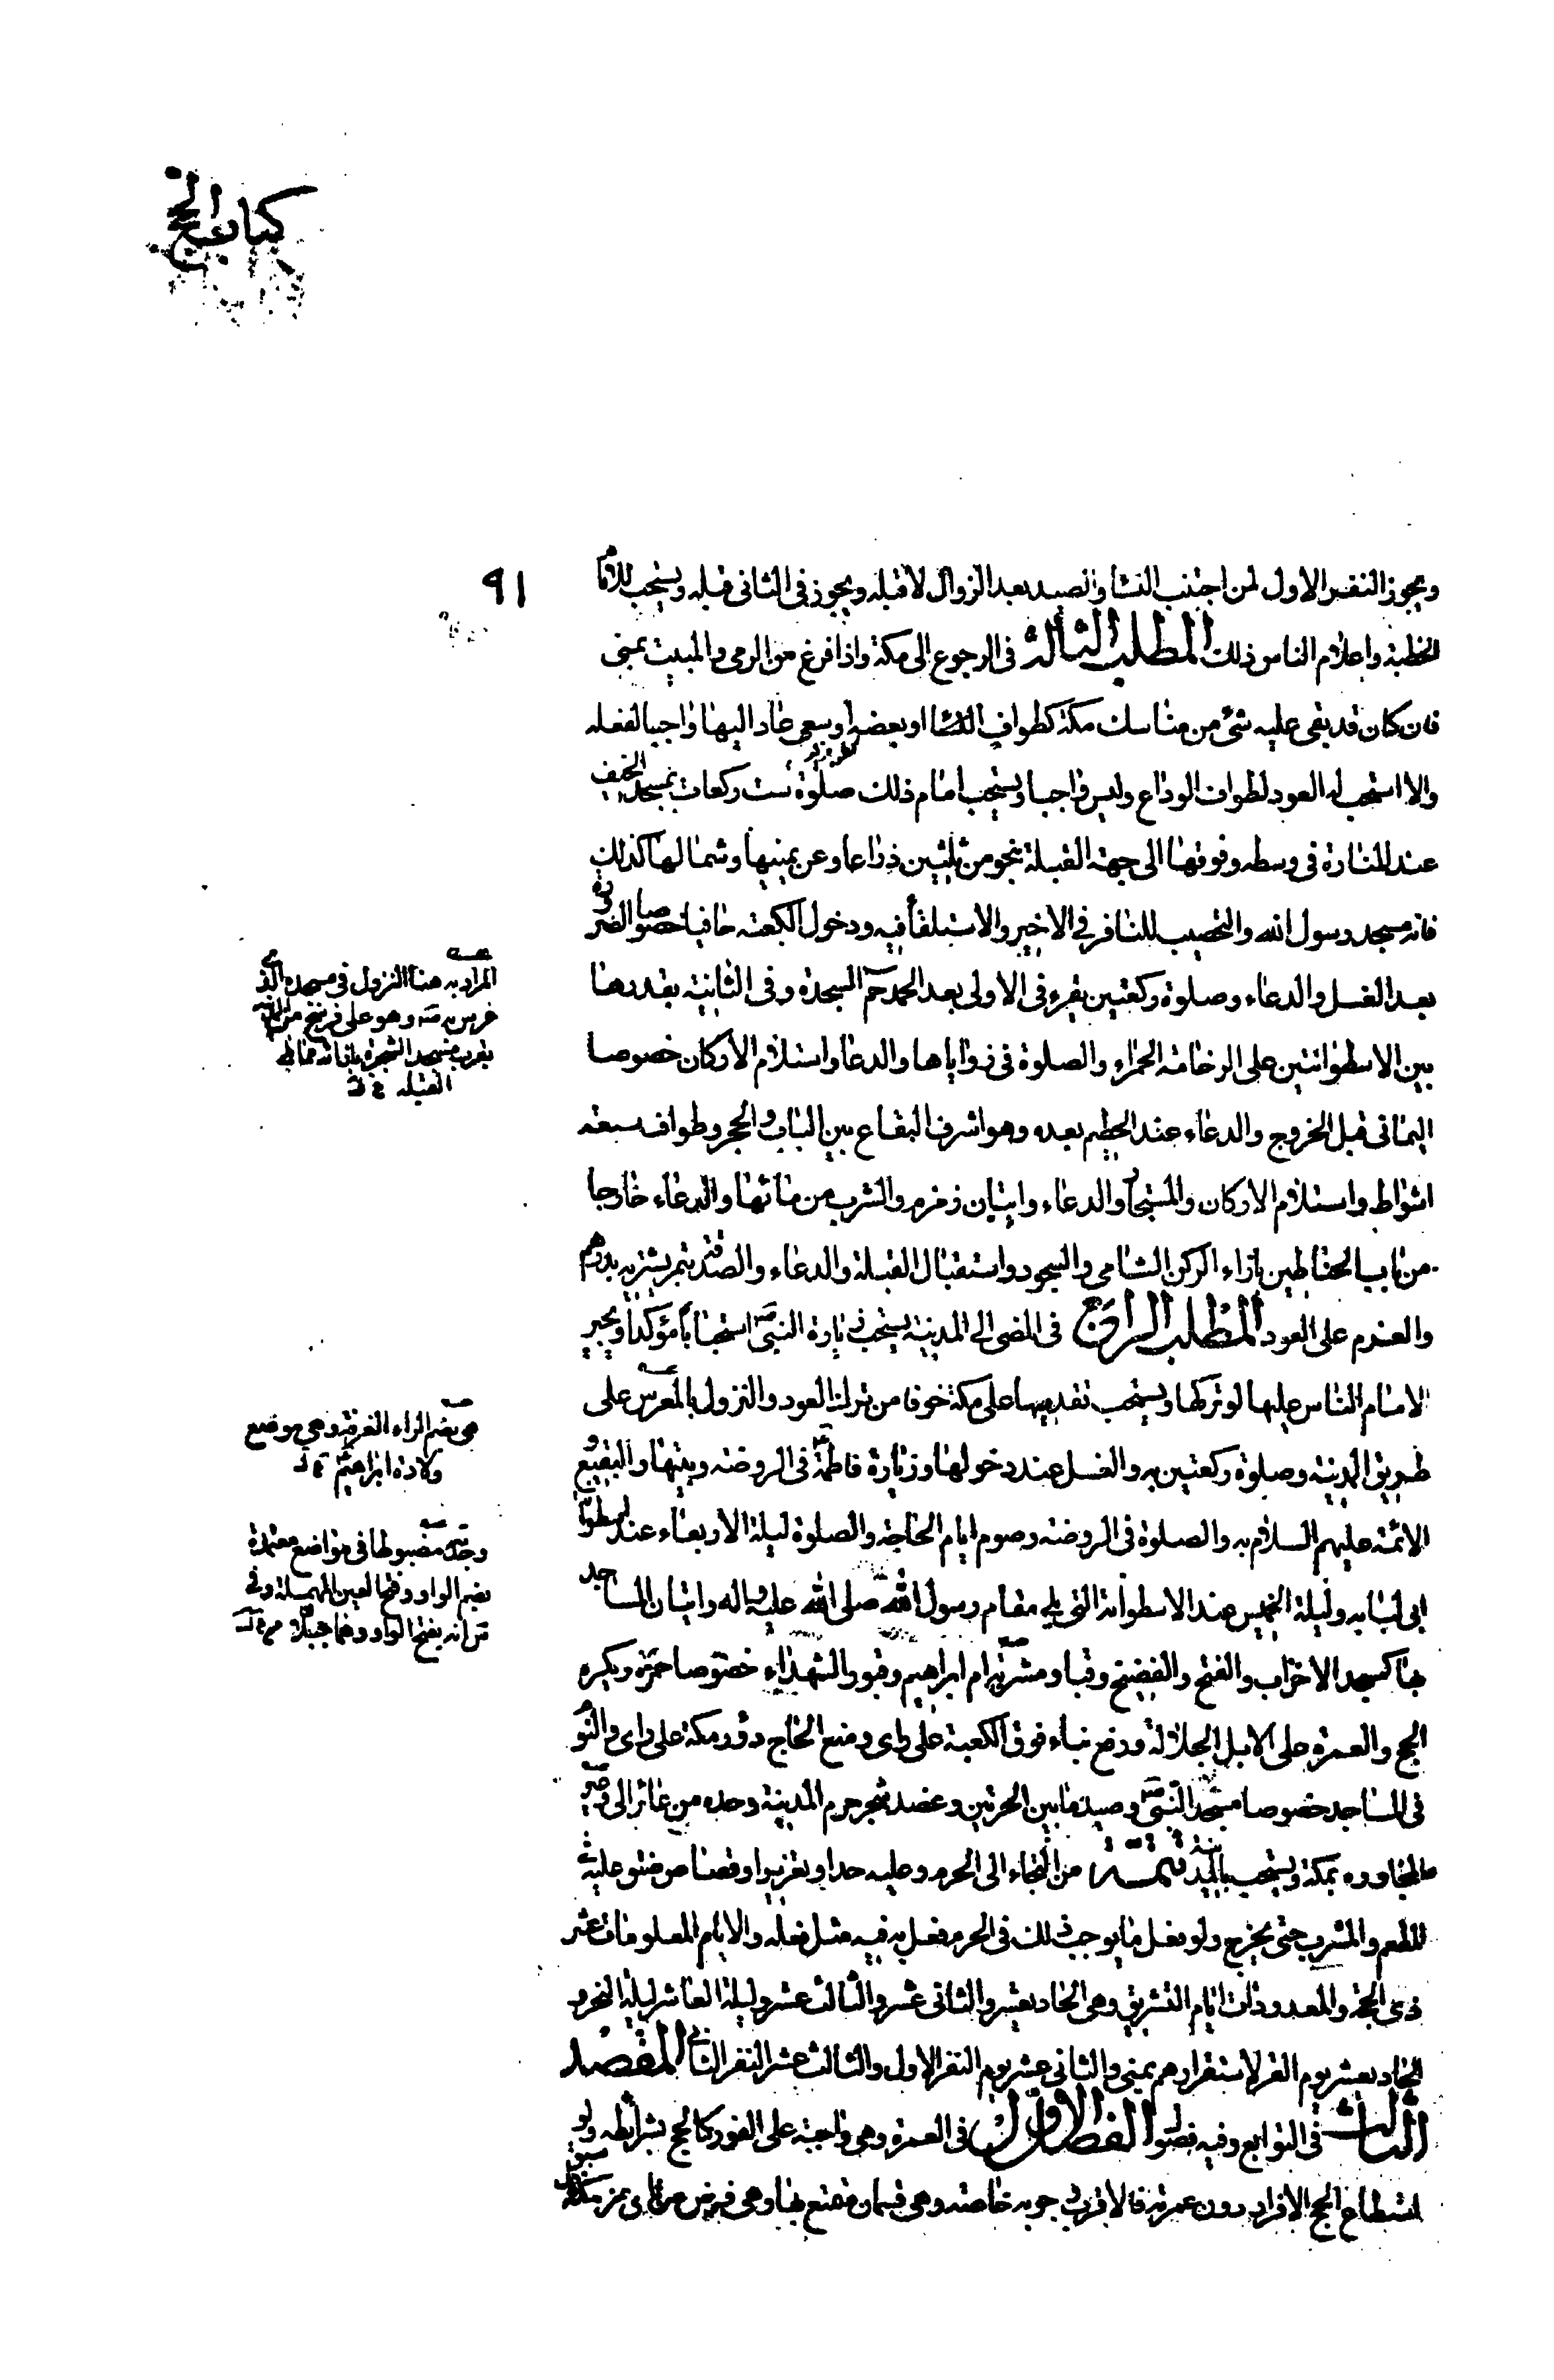 كتاب الحج
٩١
ويجوز النفر الاول لمن اجتنب النسا والصيد بعد الزوال لا قبله ويجوز في الثاني قبله ويستحب للامام
الخطبة واعلام الناس ذلك المطلب الثالث في الرجوع الى مكة واذا فرغ من الرمي والمبيت بمنى
فان كان قد بقي عليه شئ من مناسك مكة كطواف النسا او بعضه او سعي عاد اليها واجبا لفعله
والا استحب له العود لطواف الوداع وليس واجبا ويستحب امام ذلك صلوة ست ركعات بمسجد الخيف
عند المنارة في وسطه وفوقها الى جهة القبلة بنحو من ثلثين ذراعا وعن يمينها وشمالها كذلك
فانه مسجد رسول الله والتحصيب للنافر في الاخير والاستلقاء فيه ودخول الكعبة حافيا خصوصا الصرورة
بعد الغسل والدعاء وصلوة ركعتين يقرء في الاولى بعد الحمد حم السجدة وفي الثانية بقدرها
بين الاسطوانتين على الرخامة الحمراء والصلوة في زواياها والدعا واستلام الاركان خصوصا
اليماني قبل الخروج والدعاء عند الحطيم بعده وهو اشرف البقاع بين الباب والحجر وطواف سبعة
اشواط واستلام الاركان والمستجار والدعاء واتيان زمزم والشرب من مائها والدعاء خارجا
من باب الحناطين بازاء الركن الشامي والسجود واستقبال القبلة والدعاء والصدقة بتمر يشتريه بدرهم
والعزم على العود المطلب الرابع في المضي الى المدينة يستحب زيارة النبي ص استحبابا مؤكدا ويجبر
الامام الناس عليها لو تركها ويستحب تقديمها على مكة خوفا من ترك العود والنزول بالمعرس على
طريق المدينة وصلوة ركعتين به والغسل عند دخولها وزيارة فاطمة ع في الروضة وبيتها والبقيع و
الائمة عليهم السلام به والصلوة في الروضة وصوم ايام الحاجة والصلوة ليلة الاربعاء عند اسطوانة
ابي لبابه وليلة الخميس عند الاسطوانة التي يلي مقام رسول الله صلى الله عليه واله واتيان المساجد
بها كمسجد الاحزاب والفتح والفضيخ وقبا ومشربة ام ابراهيم وقبور الشهداء خصوصا حمزة ويكره
الحج والعمرة على الابل الجلالة ورفع بناء فوق الكعبة على راى ومنع الحاج دور مكة على راى والنوم
في المساجد خصوصا مسجد النبي ص وصيد ما بين الحرتين وعضد شجر حرم المدينة وحده من عائر الى وعير
والمجاوره بمكة ويستحب بالمدينة تتمة من التجاء الى الحرم وعليه حد او تعزير او قصاص ضيق عليه في
المطعم والمشرب حتى يخرج ولو فعل ما يوجب ذلك في الحرم فعل به فيه مثل فعله والايام المعلومات عشر
ذي الحجة والمعدودات ايام التشريق وهي الحاديعشر والثاني عشر والثالث عشر وليلة العاشر ليلة النحر و
الحاديعشر يوم القر لاستقرارهم بمنى والثاني عشر يوم النفر الاول والثالث عشر النفر الثاني المقصد
الثالث في التوابع وفيه فصول الفصل الاول في العمرة وهي واجبة على الفور كالحج بشرائطه ولو
استطاع لحج الافراد دون عمرته فالاقرب وجوبه خاصة وهي قسمان متمتع بها وهي فرض من نأى عن مكة
المراد به هنا النزول في مسجده الذي
عرس به ص وهو على فرسخ من المدينة
بقرب مسجد الشجرة بازائه مما يلي
القبله
هي بضم الراء الغرفة وهي موضع
ولادة ابراهيم
وجدته مضبوطا في مواضع معتمدة
بضم الواو وفتح العين المهملة وفي
انه بفتح الواو وهما جبلان